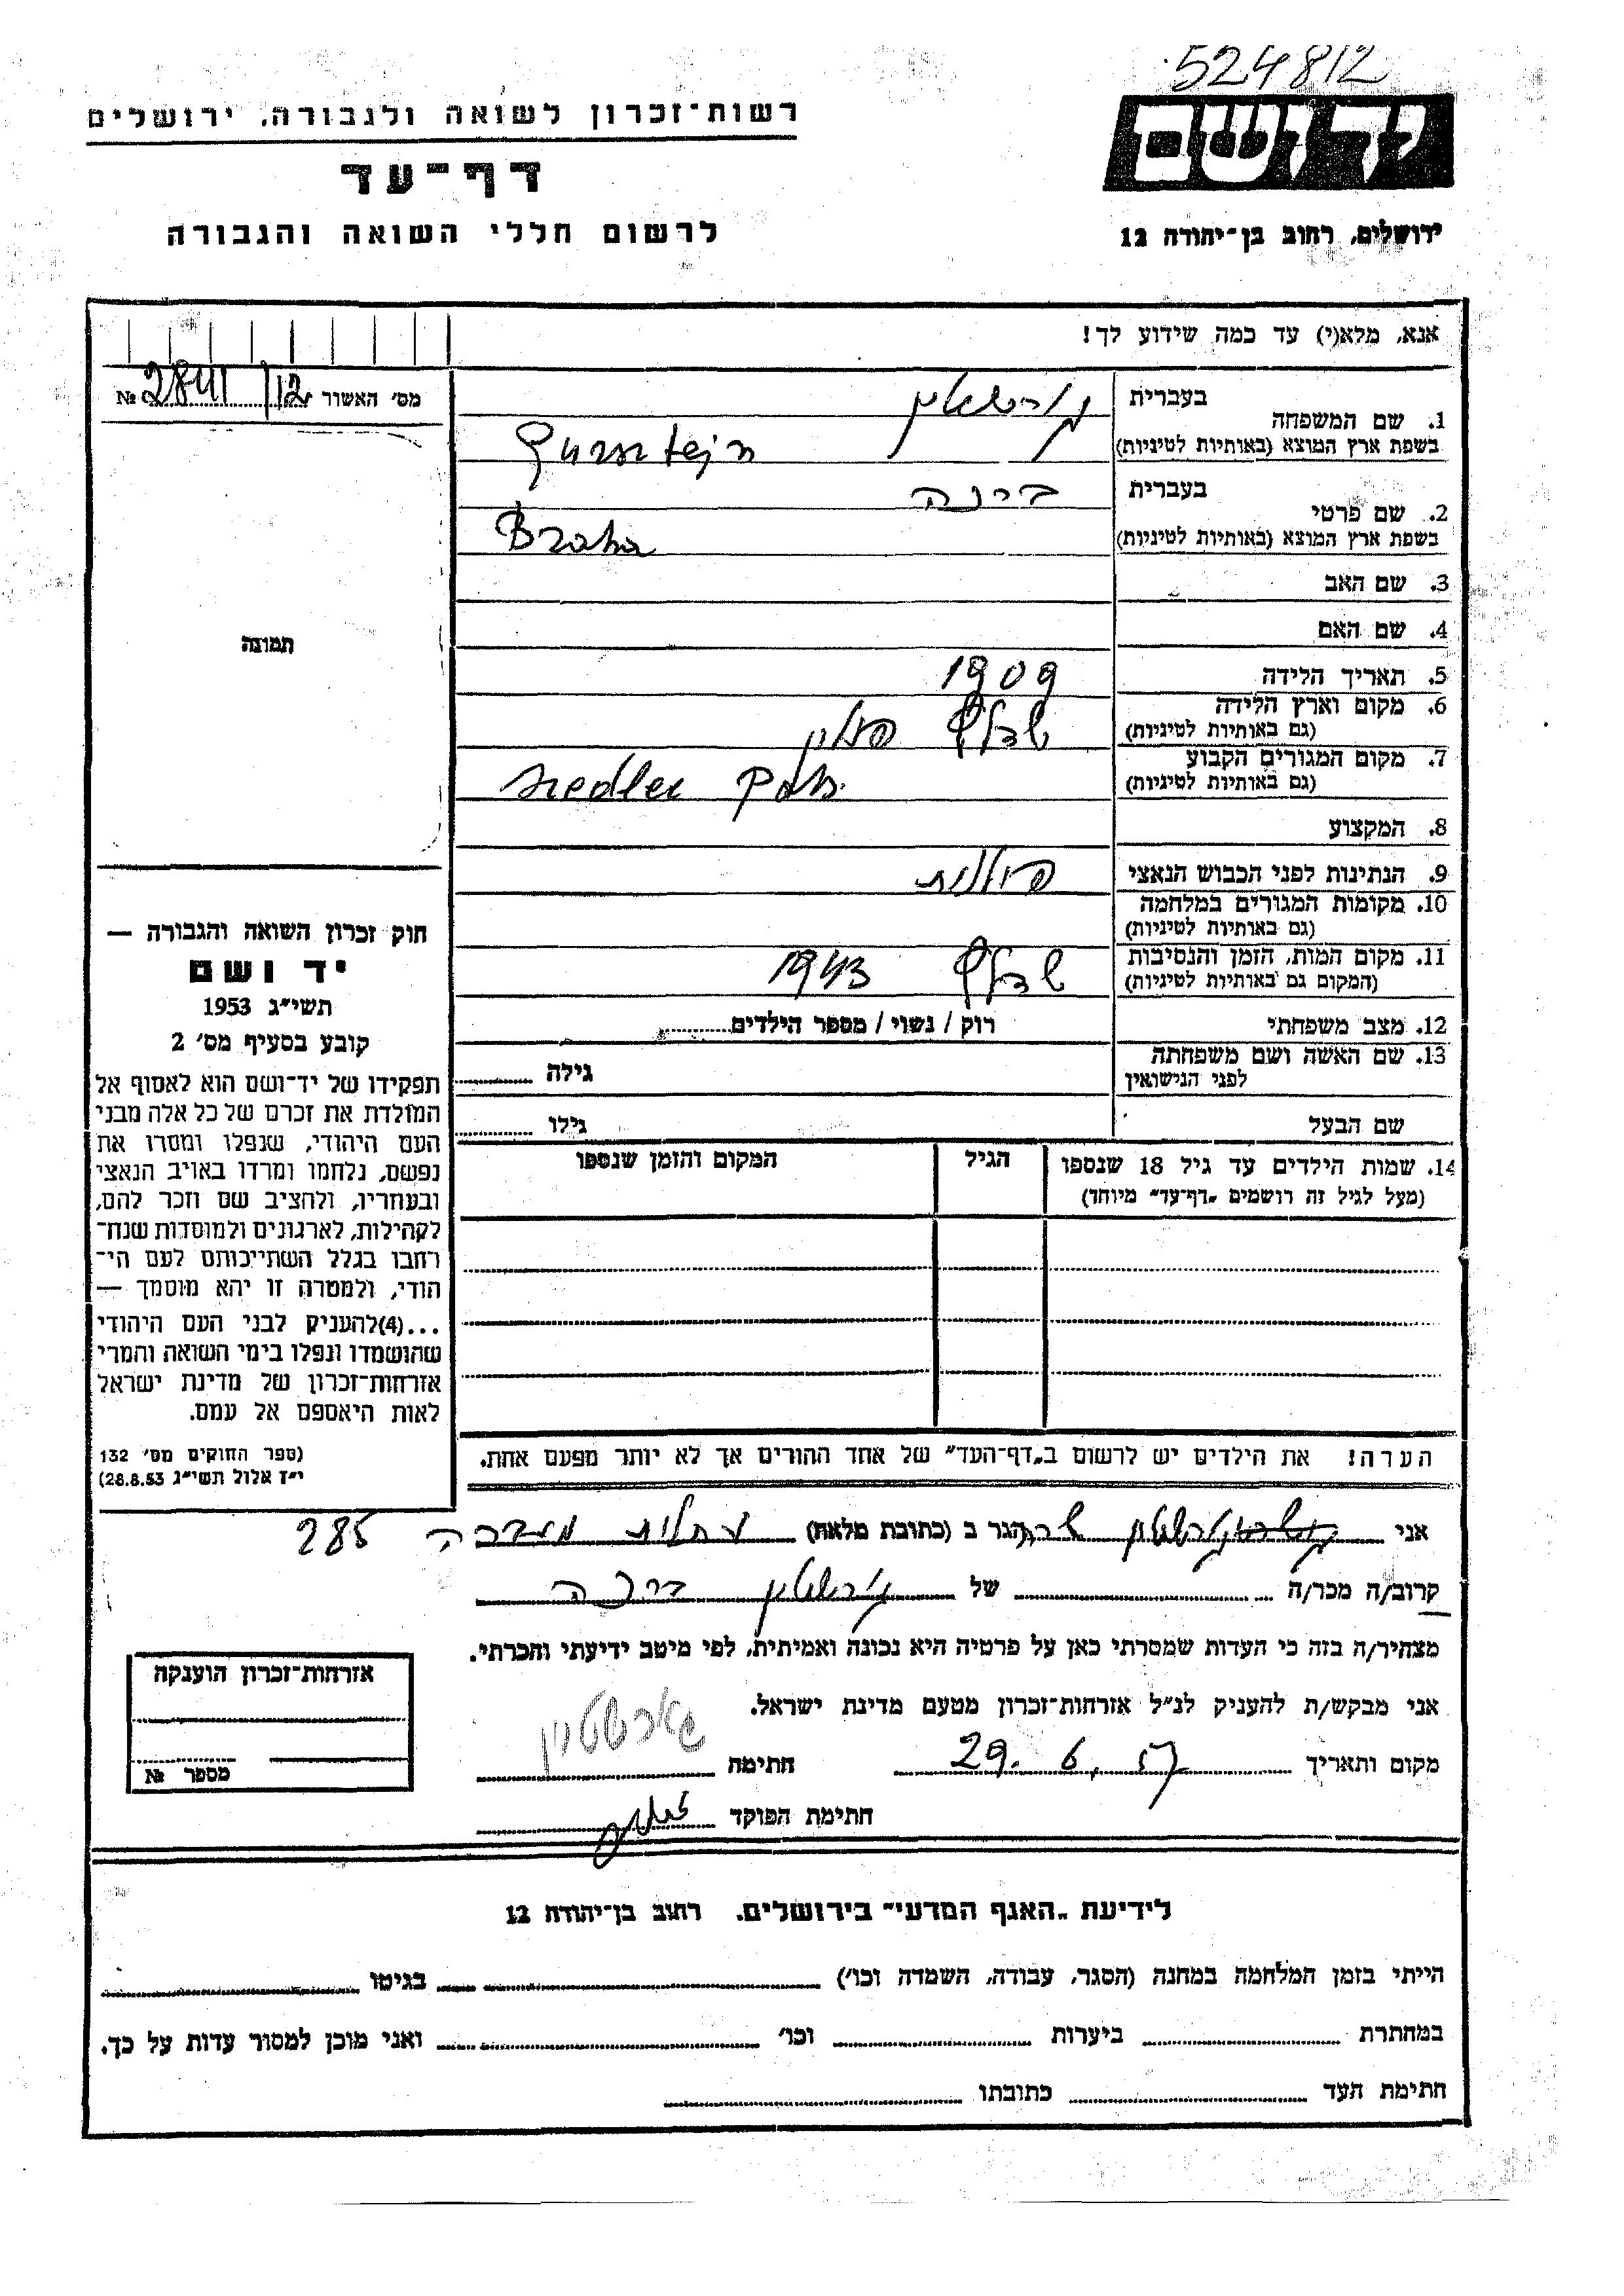 524812
רשות־זכרון לשואה ולגבורה, ירושלים
יד ושם
דף־עד
לרשום חללי השואה והגבורה
ירושלים, רחוב בן־יהודה 12
אנא, מלא(י) עד כמה שידוע לך!
מס׳ האשור 12/ 2841 №
תמונה
חוק זכרון השואה והגבורה —
יד ושם
תשי״ג 1953
קובע בסעיף מס׳ 2
תפקידו של יד־ושם הוא לאסוף אל
המולדת את זכרם של כל אלה מבני
העם היהודי, שנפלו ומסרו את
נפשם, נלחמו ומרדו באויב הנאצי
ובעוזריו, ולהציב שם וזכר להם,
לקהילות, לארגונים ולמוסדות שנח־
רחבו בגלל השתייכותם לעם הי־
הודי, ולמטרה זו יהא מוסמך —
...(4)להעניק לבני העם היהודי
שהושמדו ונפלו בימי השואה והמרי
אזרחות־זכרון של מדינת ישראל
לאות היאספם אל עמם.
(ספר החוקים מס׳ 132
י״ז אלול תשי״ג 28.8.53)
1. שם המשפחה
בעברית גורשטיין
בשפת ארץ המוצא (באותיות לטיניות) Gursztejn
2. שם פרטי
בעברית ברכה
בשפת ארץ המוצא (באותיות לטיניות) Braha
3. שם האב
4. שם האם
5. תאריך הלידה 1909
6. מקום וארץ הלידה
(גם באותיות לטיניות) שדלץ פולין
7. מקום המגורים הקבוע
(גם באותיות לטיניות)
8. המקצוע
9. הנתינות לפני הכבוש הנאצי פולנית
10. מקומות המגורים במלחמה
(גם באותיות לטיניות)
11. מקום המות, הזמן והנסיבות
(המקום גם באותיות לטיניות) שדלץ 1943
12. מצב משפחתי רוק / נשוי / מספר הילדים
13. שם האשה ושם משפחתה
לפני הנישואין גילה
שם הבעל גילו
14. שמות הילדים עד גיל 18 שנספו
(מעל לגיל זה רושמים „דף־עד״ מיוחד)
הגיל
המקום והזמן שנספו
הערה! את הילדים יש לרשום ב„דף־העד״ של אחד ההורים אך לא יותר מפעם אחת.
אני גורשטיין שרה הגר ב (כתובת מלאה) 285
קרוב/ה מכר/ה של גורשטיין ברכה
מצהיר/ה בזה כי העדות שמסרתי כאן על פרטיה היא נכונה ואמיתית, לפי מיטב ידיעתי והכרתי.
אני מבקש/ת להעניק לנ״ל אזרחות־זכרון מטעם מדינת ישראל.
מקום ותאריך 29.6.57 חתימה גורשטיין
חתימת הפוקד
אזרחות־זכרון הוענקה
מספר №
לידיעת „האגף המדעי״ בירושלים, רחוב בן־יהודה 12
הייתי בזמן המלחמה במחנה (הסגר, עבודה, השמדה וכו׳) בגיטו
במחתרת ביערות וכו׳ ואני מוכן למסור עדות על כך.
חתימת העד כתובתו